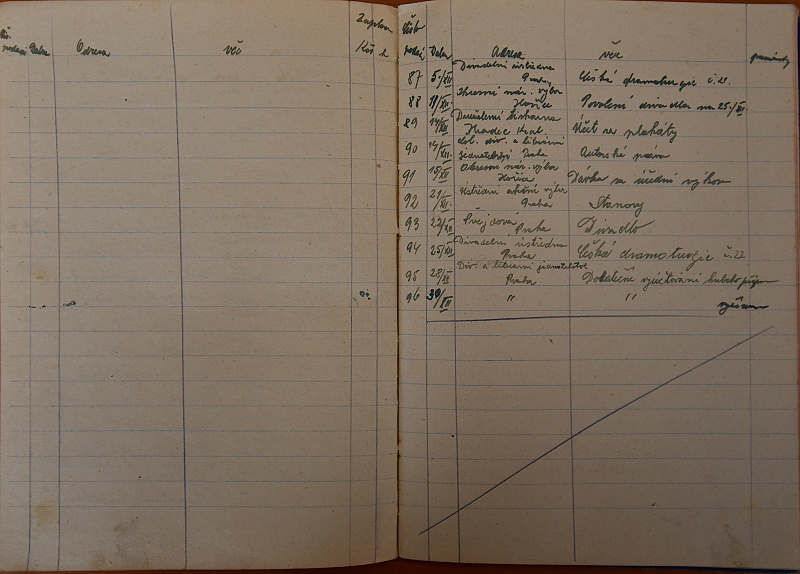 Čís.
podací Datum Adresa věc
Zaplac.
Kčs h
Číslo
podací Datum Adresa věc
87 5/XII Divadelní ústředna
Praha Česká dramaturgie č. 21
88 11/XII Okresní nár. výbor
Hořice Povolení divadla na 25./XII.
89 14/XII. Družstevní tiskárna
Hradec Král. Účet za plakáty
90 14/XII. div. a literární
jednatelství Praha Autorské
91 15/XII Okresní nár. výbor
Hořice Dávka za úřední výkon
92 21/XII. Ústřední akční výbor
Praha Stanovy
93 22/XII Švejdová
Praha Divadlo
94 25/XII Divadelní ústředna
Praha Česká dramaturgie č. 22
95 28/XII Div. a literární jednatelství
Praha vyúčtování
96 30/XII " "